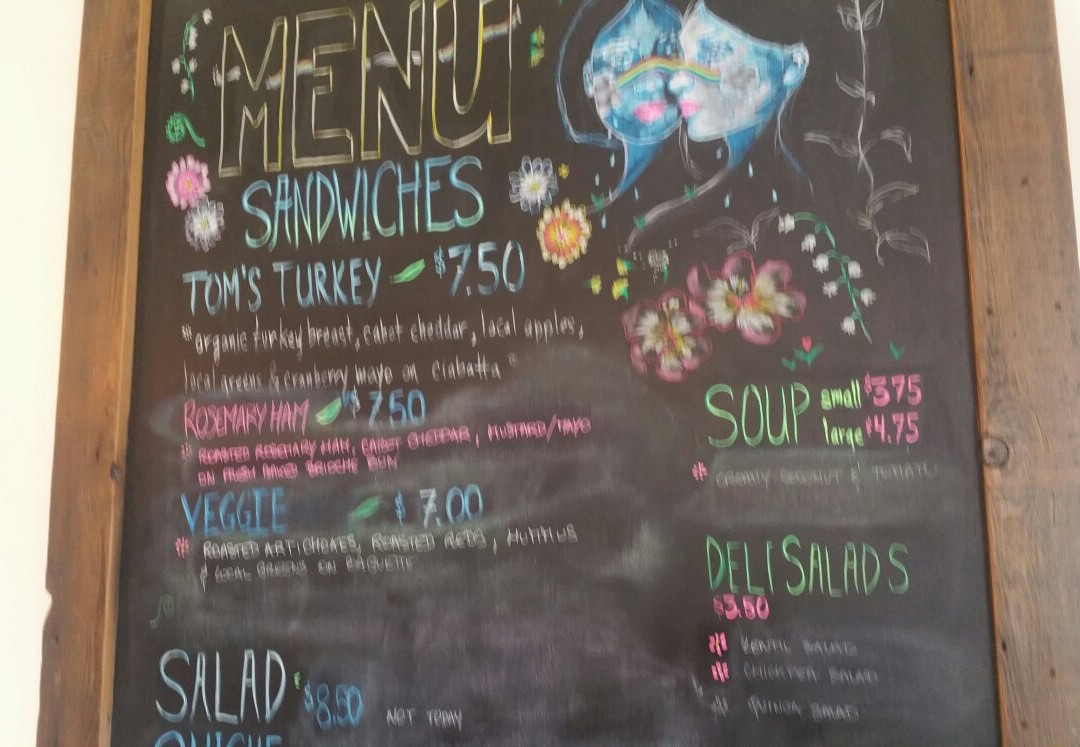 MENU
SANDWICHES
TOM'S TURKEY - $7.50
*organic turkey breast, cabot cheddar, local apples,
local greens & cranberry mayo on ciabatta*
ROSEMARY HAM - $7.50
* ROASTED ROSEMARY HAM, CABOT CHEDDAR, MUSTARD/MAYO
ON FRESH BAKED BRIOCHE BUN
VEGGIE - $7.00
* ROASTED ARTICHOKES, ROASTED REDS, HUMMUS
& LOCAL GREENS ON BAGUETTE
SALAD $8.50 NOT TODAY
QUICHE
SOUP small $3.75
large $4.75
* CREAMY COCONUT & TOMATO
DELI SALADS
* LENTIL SALAD
* CHICKPEA SALAD
* QUINOA SALAD